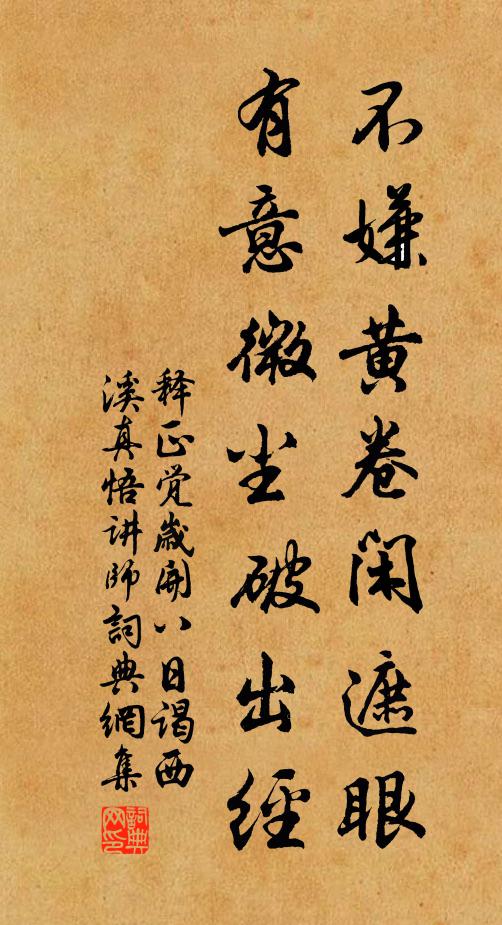 不嫌黄卷闲遮眼
有意微尘破出經
释正觉歲開八日谒西
溪真悟讲师詞典網集
詞典网印